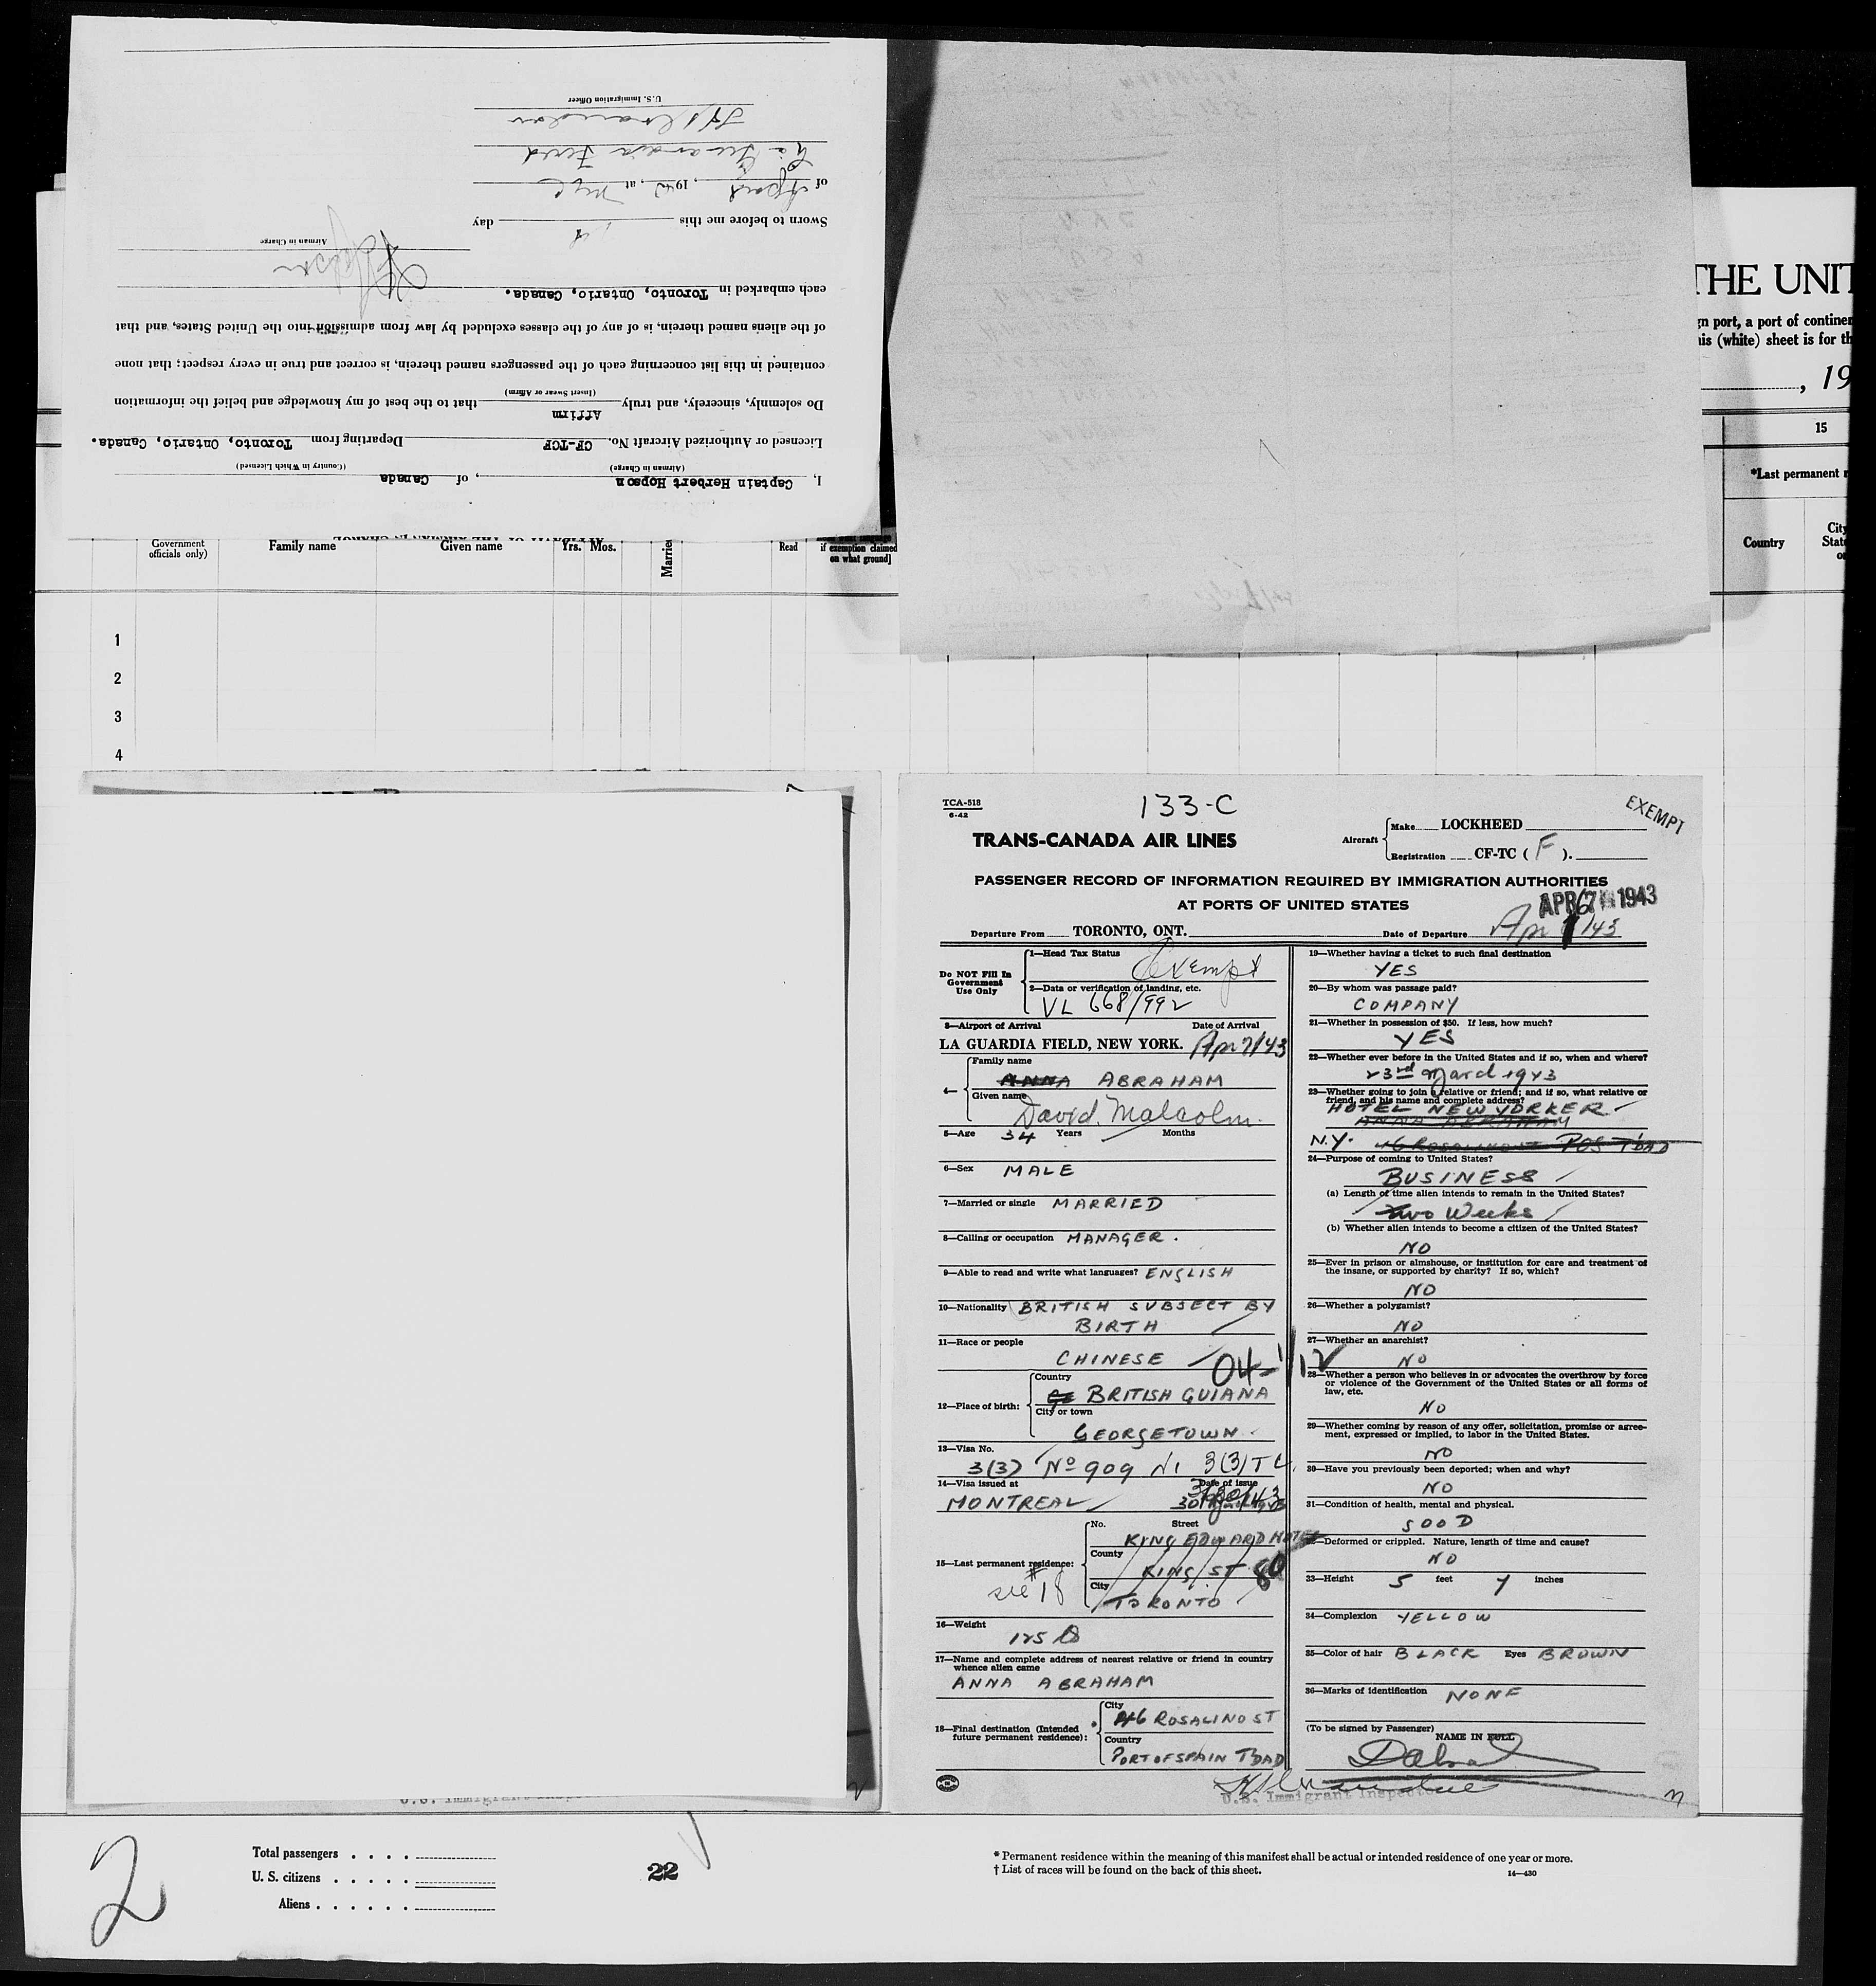 I, Captain Herbert Hopson, of Canada
(Airman in Charge) (Country in Which Licensed)
Licensed or Authorized Aircraft No. CF-TCF Departing from Toronto, Ontario, Canada.
Do solemnly, sincerely, and truly Affirm that to the best of my knowledge and belief the information
(Insert Swear or Affirm)
contained in this list concerning each of the passengers named therein, is correct and true in every respect; that none
of the aliens named therein, is of any of the classes excluded by law from admission into the United States, and that
each embarked in Toronto, Ontario, Canada.
Airman in Charge
Sworn to before me this day
of April, 1943, at NYC
La Guardia Field
U.S. Immigration Officer
THE UNIT
gn port, a port of continen
his (white) sheet is for th
, 19
15
*Last permanent r
Country
City
State
Government
officials only)
Family name
Given name
Yrs. Mos.
Married
Read
if exemption claimed
on what ground]
1
2
3
4
TCA-518
6-42
133-C
EXEMPT
TRANS-CANADA AIR LINES
Aircraft
Make LOCKHEED
Registration CF-TC ( F ).
PASSENGER RECORD OF INFORMATION REQUIRED BY IMMIGRATION AUTHORITIES
AT PORTS OF UNITED STATES
APR 1943
Departure From TORONTO, ONT. Date of Departure Apr 1/43
Do NOT Fill In
Government
Use Only
1—Head Tax Status Exempt
2—Data or verification of landing, etc.
VL 668/992
3—Airport of Arrival Date of Arrival
LA GUARDIA FIELD, NEW YORK. Apr 7/43
4—
Family name
ANNA ABRAHAM
Given name
David Malcolm.
5—Age 34 Years Months
6—Sex MALE
7—Married or single MARRIED
8—Calling or occupation MANAGER.
9—Able to read and write what languages? ENGLISH
10—Nationality BRITISH SUBJECT BY
BIRTH
11—Race or people
CHINESE
04-1/12
12—Place of birth:
Country
BRITISH GUIANA
City or town
GEORGETOWN
13—Visa No.
3(3) No 909 3(3)
14—Visa issued at Date of issue
MONTREAL
15—Last permanent residence:
No. Street
KING EDWARD HOTEL
County
KING ST 80
City
TORONTO
see # 18
16—Weight
125
17—Name and complete address of nearest relative or friend in country
whence alien came
ANNA ABRAHAM
18—Final destination (Intended
future permanent residence):
City
46 ROSALINO ST
Country
PORT OF SPAIN T'DAD
19—Whether having a ticket to such final destination
YES
20—By whom was passage paid?
COMPANY
21—Whether in possession of $50. If less, how much?
YES
22—Whether ever before in the United States and if so, when and where?
23rd March 1943
23—Whether going to join a relative or friend; and if so, what relative or
friend, and his name and complete address?
HOTEL NEW YORKER
ANNA ABRAHAM
N.Y. 46 ROSALINO ST POS T'DAD
24—Purpose of coming to United States?
BUSINESS
(a) Length of time alien intends to remain in the United States?
Two Weeks
(b) Whether alien intends to become a citizen of the United States?
NO
25—Ever in prison or almshouse, or institution for care and treatment of
the insane, or supported by charity? If so, which?
NO
26—Whether a polygamist?
NO
27—Whether an anarchist?
NO
28—Whether a person who believes in or advocates the overthrow by force
or violence of the Government of the United States or all forms of
law, etc.
NO
29—Whether coming by reason of any offer, solicitation, promise or agree-
ment, expressed or implied, to labor in the United States.
NO
30—Have you previously been deported; when and why?
NO
31—Condition of health, mental and physical.
GOOD
32—Deformed or crippled. Nature, length of time and cause?
NO
33—Height 5 feet 7 inches
34—Complexion YELLOW
35—Color of hair BLACK Eyes BROWN
36—Marks of identification NONE
(To be signed by Passenger)
NAME IN FULL
U.S. Immigrant Inspector
U.S. Immigrant Inspe
2
Total passengers . . . .
U. S. citizens . . . . .
Aliens . . . . . .
22
* Permanent residence within the meaning of this manifest shall be actual or intended residence of one year or more.
† List of races will be found on the back of this sheet.
14—430